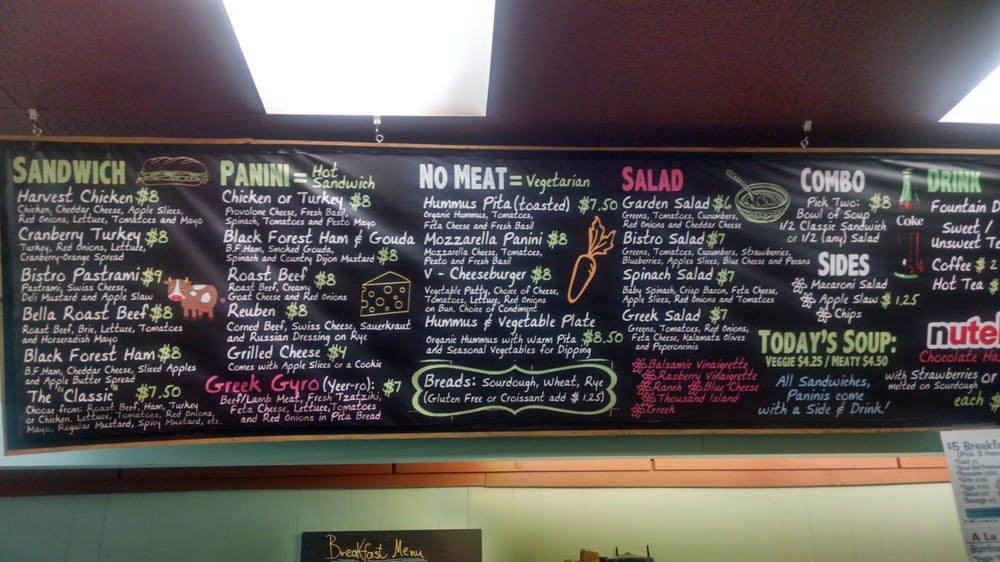 SANDWICH
Harvest Chicken $8
Chicken, Cheddar Cheese, Apple Slices,
Red Onions, Lettuce, Tomatoes and Mayo
Cranberry Turkey $8
Turkey, Red Onions, Lettuce,
Cranberry-Orange Spread
Bistro Pastrami $9
Pastrami, Swiss Cheese,
Deli Mustard and Apple Slaw
Bella Roast Beef $8
Roast Beef, Brie, Lettuce, Tomatoes
and Horseradish Mayo
Black Forest Ham $8
B.F.Ham, Cheddar Cheese, Sliced Apples
and Apple Butter Spread
The "Classic" $7.50
Choose from: Roast Beef, Ham, Turkey
or Chicken, Lettuce, Tomatoes, Red Onions,
Mayo, Regular Mustard, Spicy Mustard, etc.
PANINI = Hot Sandwich
Chicken or Turkey $8
Provolone Cheese, Fresh Basil,
Spinach, Tomatoes and Pesto Mayo
Black Forest Ham & Gouda
B.F.Ham, Smoked Gouda,
Spinach and Country Dijon Mustard $8
Roast Beef $8
Roast Beef, Creamy
Goat Cheese and Red Onions
Reuben $8
Corned Beef, Swiss Cheese, Sauerkraut
and Russian Dressing on Rye
Grilled Cheese $4
Comes with Apple Slices or a Cookie
Greek Gyro (Yeer-ro): $7
Beef/Lamb Meat, Fresh Tzatziki,
Feta Cheese, Lettuce, Tomatoes
and Red Onions in Pita Bread
NO MEAT = Vegetarian
Hummus Pita (toasted) $7.50
Organic Hummus, Tomatoes,
Feta Cheese and Fresh Basil
Mozzarella Panini $8
Mozzarella Cheese, Tomatoes,
Pesto and Fresh Basil
V - Cheeseburger $8
Vegetable Patty, Choice of Cheese,
Tomatoes, Lettuce, Red Onions
on Bun. Choice of Condiment
Hummus & Vegetable Plate
Organic Hummus with Warm Pita $8.50
and Seasonal Vegetables for Dipping
Breads: Sourdough, Wheat, Rye
(Gluten Free or Croissant add $1.25)
SALAD
Garden Salad $6
Greens, Tomatoes, Cucumbers,
Red Onions and Cheddar Cheese
Bistro Salad $7
Greens, Tomatoes, Cucumbers, Strawberries,
Blueberries, Apples Slices, Blue Cheese and Pecans
Spinach Salad $7
Baby Spinach, Crisp Bacon, Feta Cheese,
Apple Slices, Red Onions and Tomatoes
Greek Salad $7
Greens, Tomatoes, Red Onions,
Feta Cheese, Kalamata Olives
and Peperoncinis
Balsamic Vinaigrette
Rasberry Vinaigrette
Ranch Blue Cheese
Thousand Island
Greek
COMBO
Pick Two: $8
Bowl of Soup
1/2 Classic Sandwich
or 1/2 (any) Salad
SIDES
Macaroni Salad
Apple Slaw $1.25
Chips
TODAY'S SOUP:
VEGGIE $4.25 / MEATY $4.50
All Sandwiches,
Paninis come
with a Side & Drink!
Coke
DRINK
Fountain D
Sweet /
Unsweet Te
Coffee $2
Hot Tea $
nutel
Chocolate Ha
with Strawberries or
melted on Sourdough
each $
Breakfast Menu
$5 Breakfa
A La